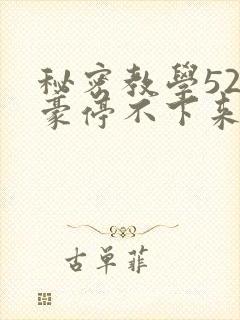 秘密教學52
豪停不下来
古单菲